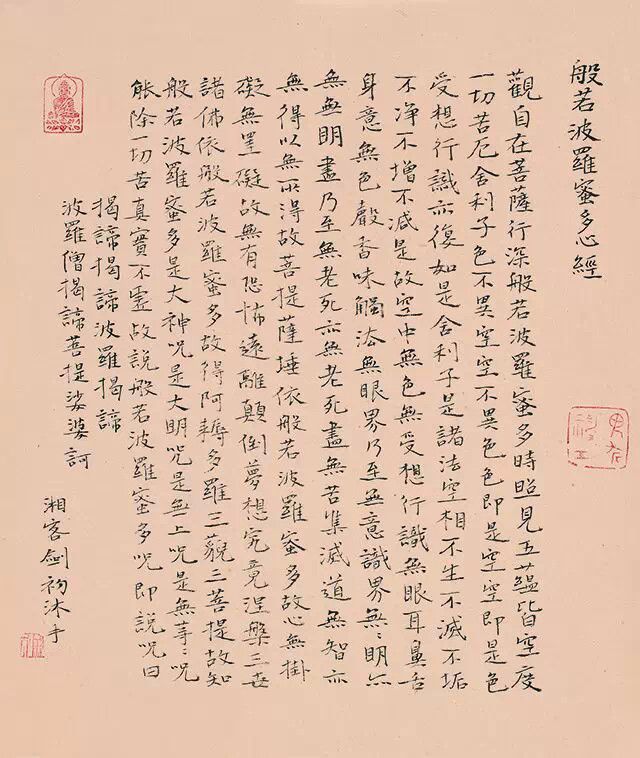 般若波羅蜜多心經
觀自在菩薩行深般若波羅蜜多時照見五蘊皆空度
一切苦厄舍利子色不異空空不異色色即是空空即是色
受想行識亦復如是舍利子是諸法空相不生不滅不垢
不净不增不減是故空中無色無受想行識無眼耳鼻舌
身意無色聲香味觸法無眼界乃至無意識界無〻明亦
無無明盡乃至無老死亦無老死盡無苦集滅道無智亦
無得以無所得故菩提薩埵依般若波羅蜜多故心無掛
礙無罣礙故無有恐怖遠離顛倒夢想究竟涅槃三世
諸佛依般若波羅蜜多故得阿耨多羅三藐三菩提故知
般若波羅蜜多是大神咒是大明咒是無上咒是無等〻咒
能除一切苦真實不虛故說般若波羅蜜多咒即說咒曰
揭諦揭諦波羅揭諦
波羅僧揭諦菩提娑婆訶
湘客劍初沐手